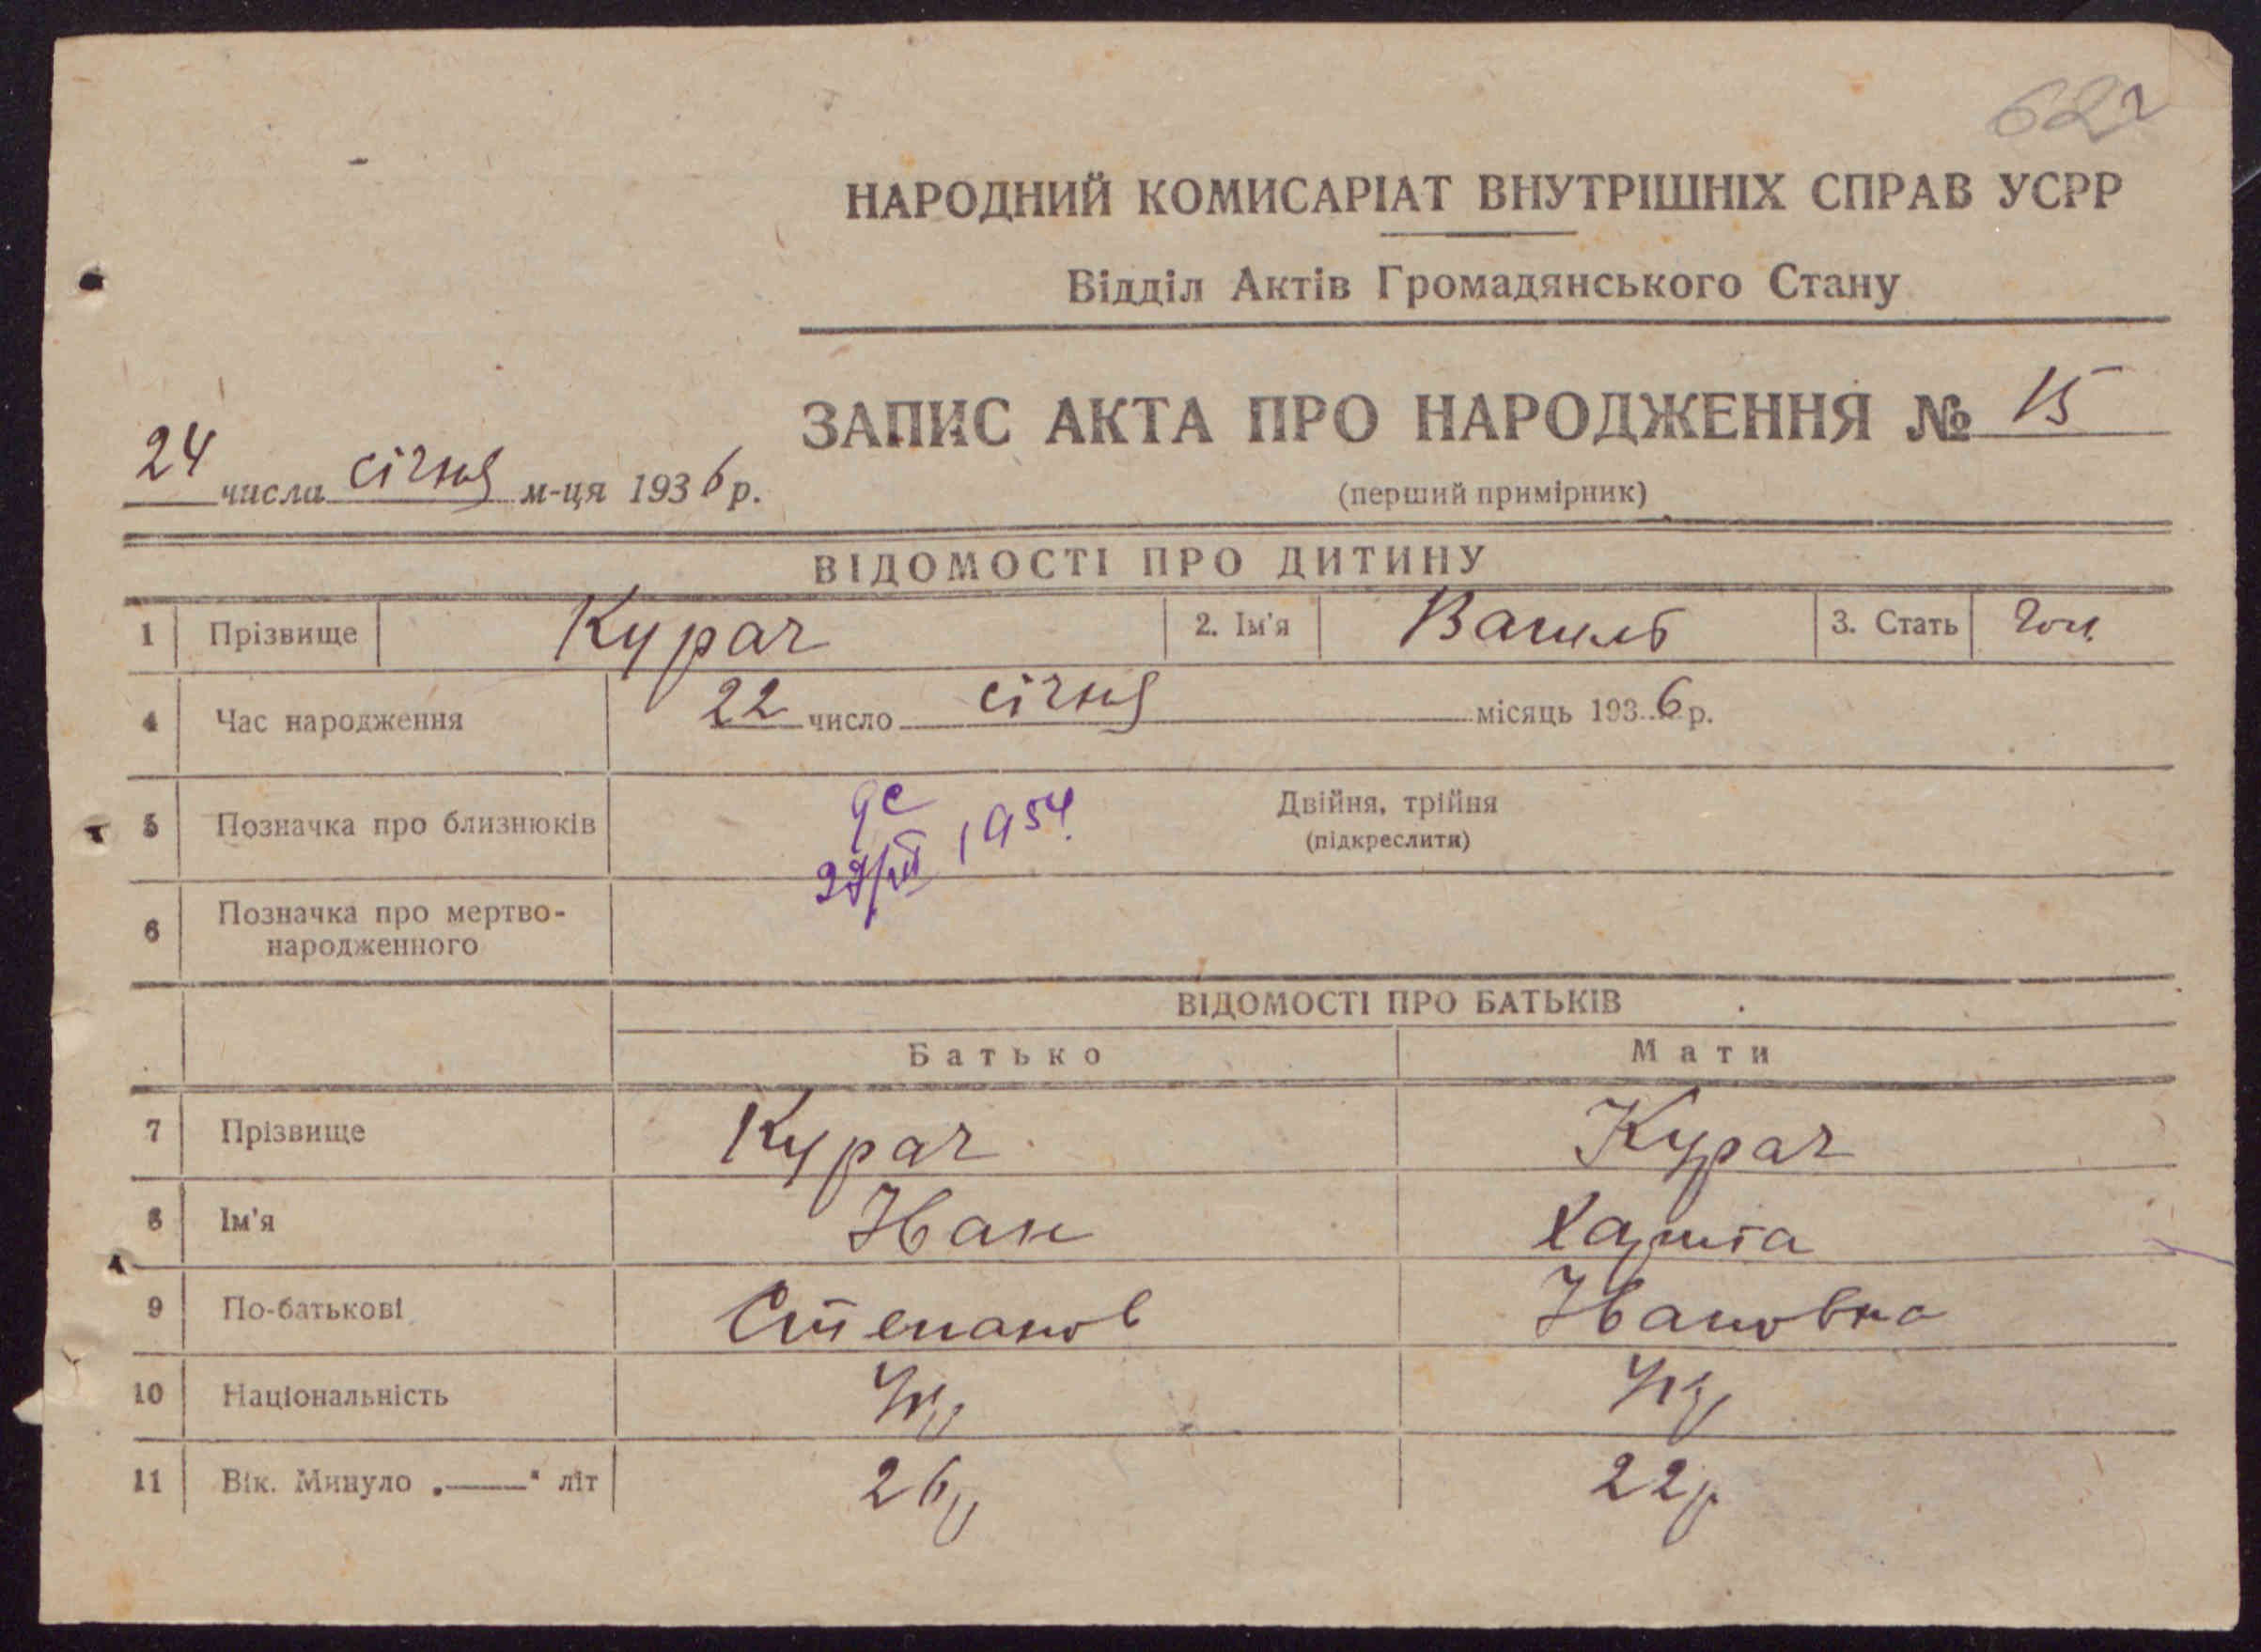 622
НАРОДНИЙ КОМИСАРІАТ ВНУТРІШНІХ СПРАВ УСРР
Відділ Актів Громадянського Стану
ЗАПИС АКТА ПРО НАРОДЖЕННЯ № 15
24 числа січня м-ця 1936 р.
(перший примірник)
ВІДОМОСТІ ПРО ДИТИНУ
1 Прізвище Курач 2. Ім'я Василь 3. Стать чол.
4 Час народження 22 число січня місяць 1936 р.
5 Позначка про близнюків 1954 Двійня, трійня
(підкреслити)
6 Позначка про мертво-
народженного
ВІДОМОСТІ ПРО БАТЬКІВ
Батько Мати
7 Прізвище Курач Курач
8 Ім'я Іван
9 По-батькові Степанов Івановна
10 Національність Укр Укр
11 Вік. Минуло „——" літ 26р 22р